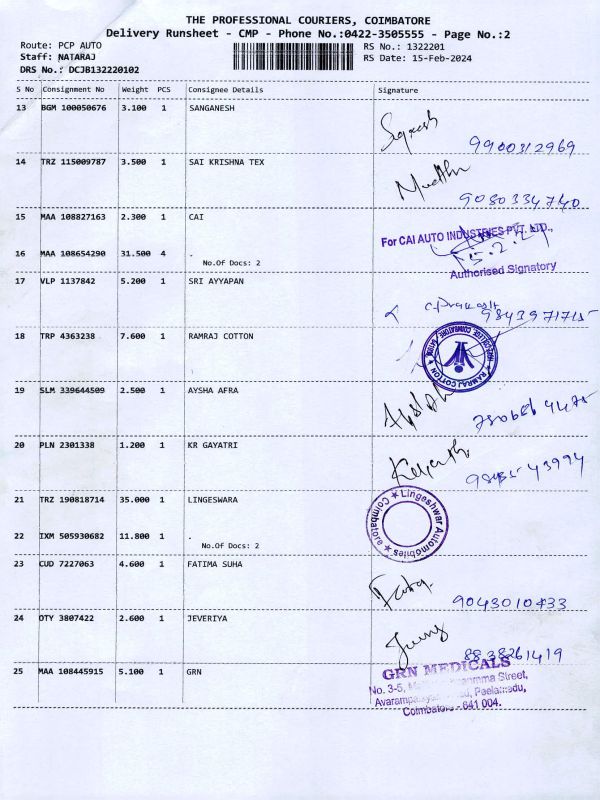 THE PROFESSIONAL COURIERS, COIMBATORE
Delivery Runsheet - CMP - Phone No.:0422-3505555 - Page No.:2
Route: PCP AUTO
RS No.: 1322201
Staff: NATARAJ
RS Date: 15-Feb-2024
DRS No.: DCJB132220102
S No Consignment No Weight PCS Consignee Details Signature
13 BGM 100050676 3.100 1 SANGANESH
9900312969
14 TRZ 115009787 3.500 1 SAI KRISHNA TEX
9080334740
15 MAA 108827163 2.300 1 CAI
For CAI AUTO INDUSTRIES PVT. LTD.,
16 MAA 108654290 31.500 4 .
No.Of Docs: 2
Authorised Signatory
17 VLP 1137842 5.200 1 SRI AYYAPPAN
9843971715
18 TRP 4363238 7.600 1 RAMRAJ COTTON
RAMRAJ COTTON
19 SLM 339644509 2.500 1 AYSHA AFRA
20 PLN 2301338 1.200 1 KR GAYATRI
21 TRZ 190818714 35.000 1 LINGESWARA
Lingeshwar Automobiles
Coimbatore
22 IXM 505930682 11.800 1 .
No.Of Docs: 2
23 CUD 7227063 4.600 1 FATIMA SUHA
24 OTY 3807422 2.600 1 JEVERIYA
8838261419
25 MAA 108445915 5.100 1 GRN
GRN MEDICALS
No. 3-5, Street,
Peelamedu,
Coimbatore - 641 004.